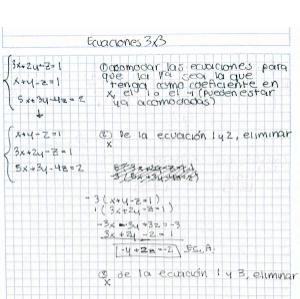 Ecuaciones 3x3
3x+2y-z=1
x+y-z=1
5x+3y-4z=2
① acomodar las ecuaciones para
que la 1ª sea la que
tenga como coeficiente en
x, el 1 o el -1 (pueden estar
ya acomodadas)
x+y-z=1
3x+2y-z=1
5x+3y-4z=2
② De la ecuación 1 y 2, eliminar
x
-3(x+y-z=1)
1(3x+2y-z=1)
-3x-3y+3z=-3
3x+2y-z=1
-y+2z=-2 Ec. A.
③ de la ecuación 1 y 3, eliminar
x